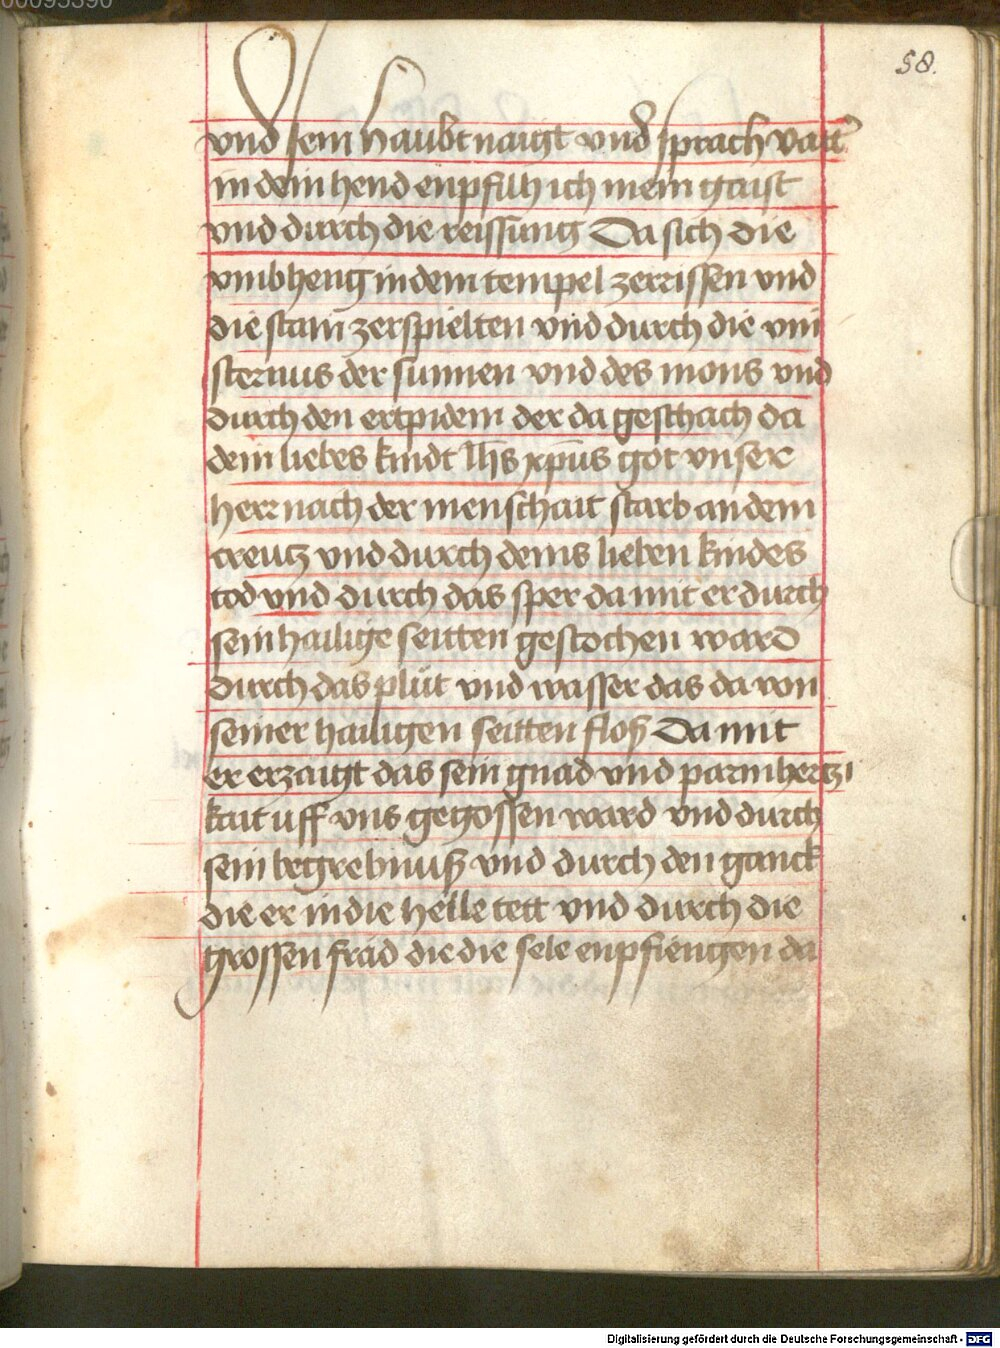 00095390
58.
vnd sein haubt naigt vnd sprach vatt
in dein hend enpfilh ich mein gaist
vnd durch die reissung Da sich die
vmbheng in dem tempel zerrissen vnd
die stain zerspielten vnd durch die vin
sternus der sunnen vnd des mons vnd
durch den ertpidem der da geschach da
dein liebes kindt Jhs xpus got vnser
herr nach der menschait starb an dem
creutz vnd durch deins lieben kindes
tod vnd durch das sper da mit er durch
sein hailige seitten gestochen ward
durch das plut vnd wasser das da von
seiner hailigen seitten floß Da mit
er erzaigt das sein gnad vnd parmhertzi
kait uff vns gegossen ward vnd durch
sein begrebnuß vnd durch den ganck
die er in die helle tett vnd durch die
grossen frad die die sele enpfiengen da
Digitalisierung gefördert durch die Deutsche Forschungsgemeinschaft - DFG